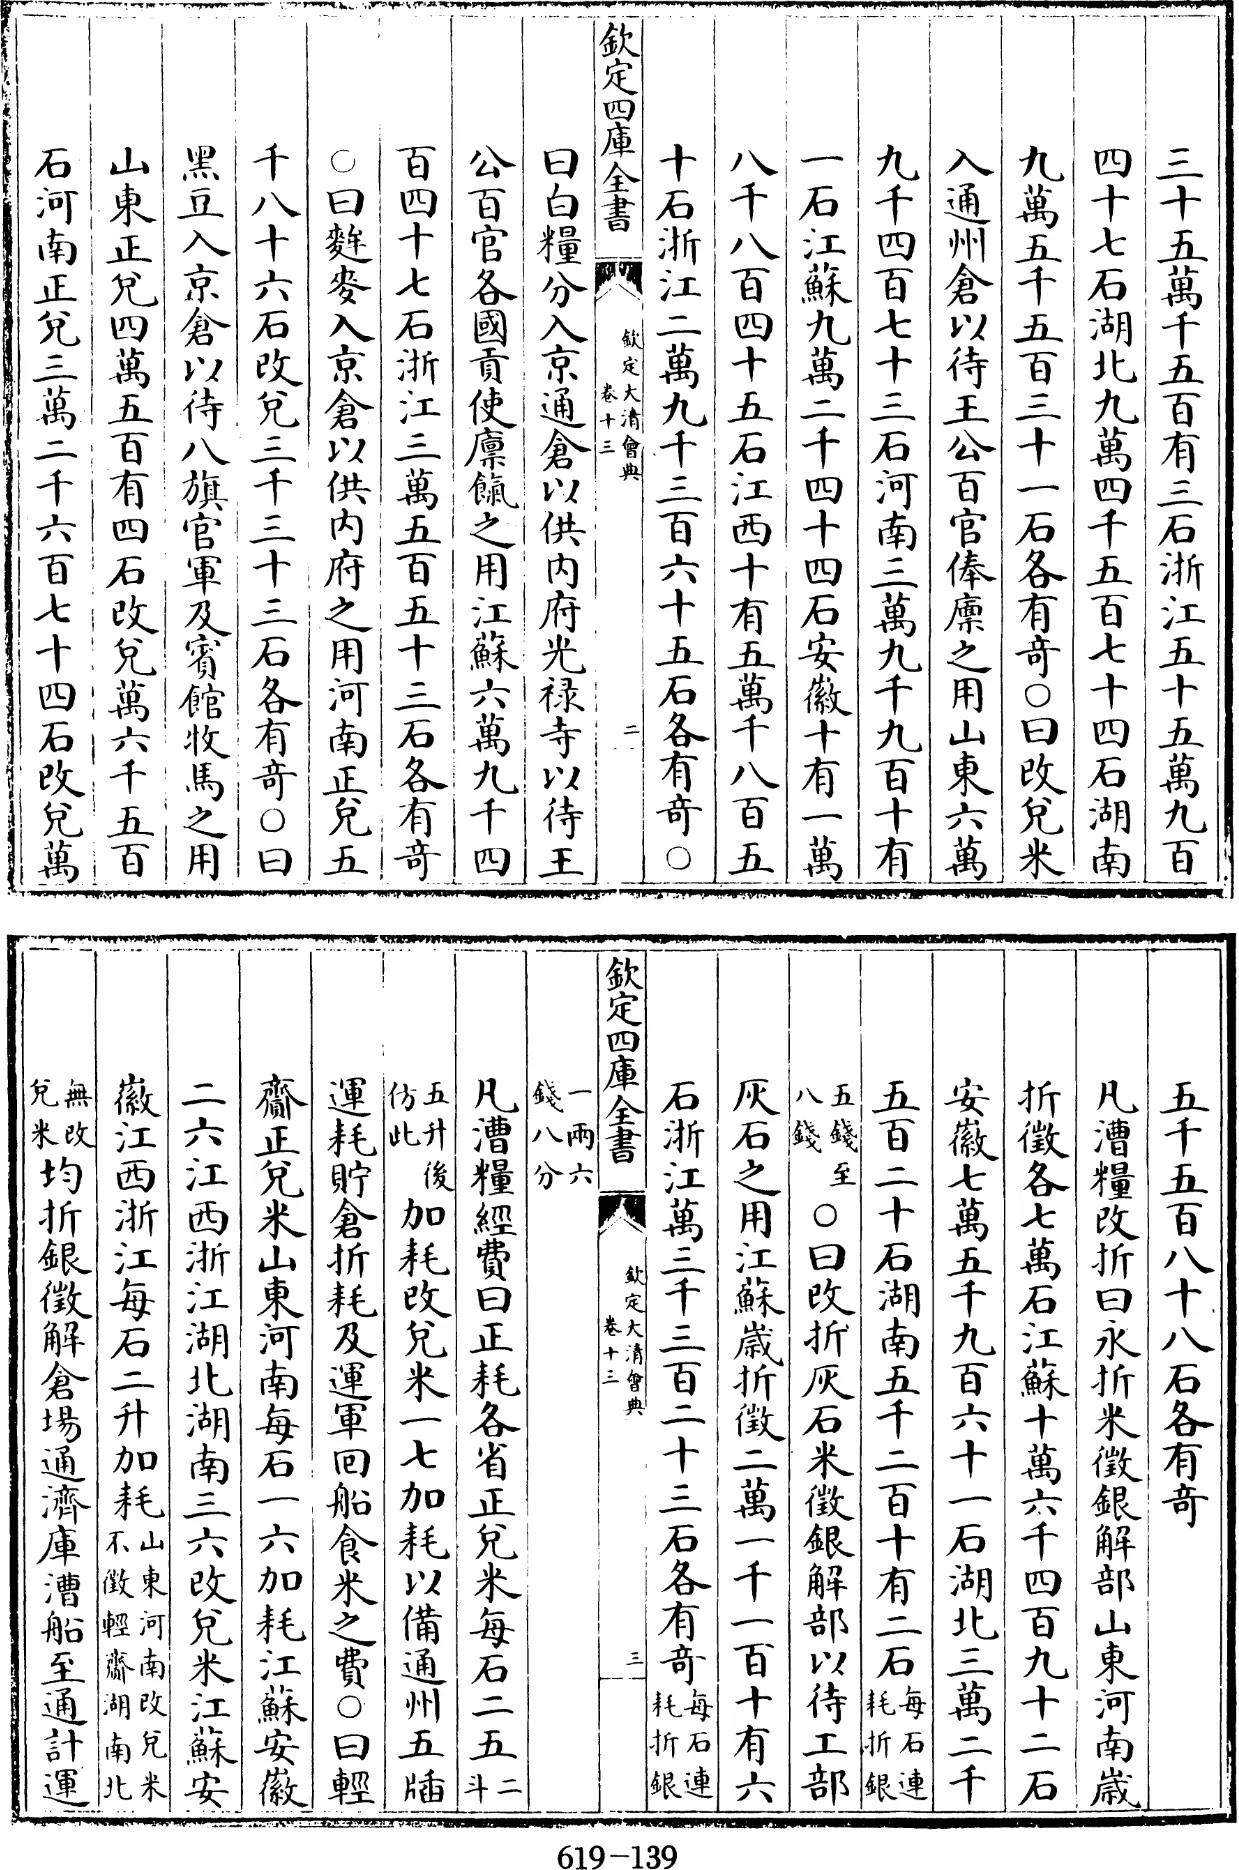 三十五萬千五百有三石浙江五十五萬九百
四十七石湖北九萬四千五百七十四石湖南
九萬五千五百三十一石各有奇○曰改兌米
入通州倉以待王公百官俸廪之用山東六萬
九千四百七十三石河南三萬九千九百十有
一石江蘇九萬二千四十四石安徽十有一萬
八千八百四十五石江西十有五萬千八百五
十石浙江二萬九千三百六十五石各有奇○
欽定四庫全書
欽定大清會典
卷十三
二
曰白糧分入京通倉以供内府光禄寺以待王
公百官各國貢使廪餼之用江蘇六萬九千四
百四十七石浙江三萬五百五十三石各有奇
○曰麰麥入京倉以供内府之用河南正兌五
千八十六石改兌三千三十三石各有奇○曰
黑豆入京倉以待八旗官軍及賓館牧馬之用
山東正兌四萬五百有四石改兌萬六千五百
石河南正兌三萬二千六百七十四石改兌萬
五千五百八十八石各有奇
凡漕糧改折曰永折米徵銀解部山東河南歲
折徵各七萬石江蘇十萬六千四百九十二石
安徽七萬五千九百六十一石湖北三萬二千
五百二十石湖南五千二百十有二石每石連耗折銀
五錢至八錢○曰改折灰石米徵銀解部以待工部
灰石之用江蘇歲折徵二萬一千一百十有六
石浙江萬三千三百二十三石各有奇每石連耗折銀
欽定四庫全書
欽定大清會典
卷十三
三
一兩六錢八分
凡漕糧經費曰正耗各省正兌米每石二五二斗
五升後仿此加耗改兌米一七加耗以備通州五牐
運耗貯倉折耗及運軍回船食米之費○曰輕
齎正兌米山東河南每石一六加耗江蘇安徽
二六江西浙江湖北湖南三六改兌米江蘇安
徽江西浙江每石二升加耗山東河南改兌米不徵輕齎湖南北
無改兌米均折銀徵解倉場通濟庫漕船至通計運
619-139